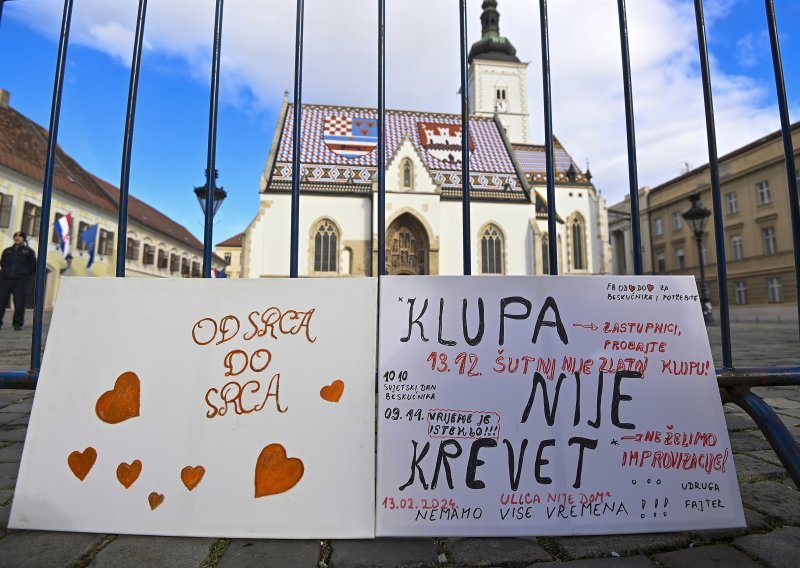 OD SRCA
DO
SRCA
FB OD♥DO♥ ZA
BESKUĆNIKE I POTREBITE
*KLUPA
→ ZASTUPNICI,
PROBAJTE
13.12. ŠUTNJ NIJE ZLATNJ KLUPU!
10.10
SVJETSKI DAN
BESKUĆNIKA
NIJE
09.11. VRIJEME JE
ISTEKLO!!!
KREVET
* → NE ŽELIMO
IMPROVIZACIJE!
13.02.2024. ULICA NIJE DOM"
NEMAMO VIŠE VREMENA ...!!!
UDRUGA
FAJTER